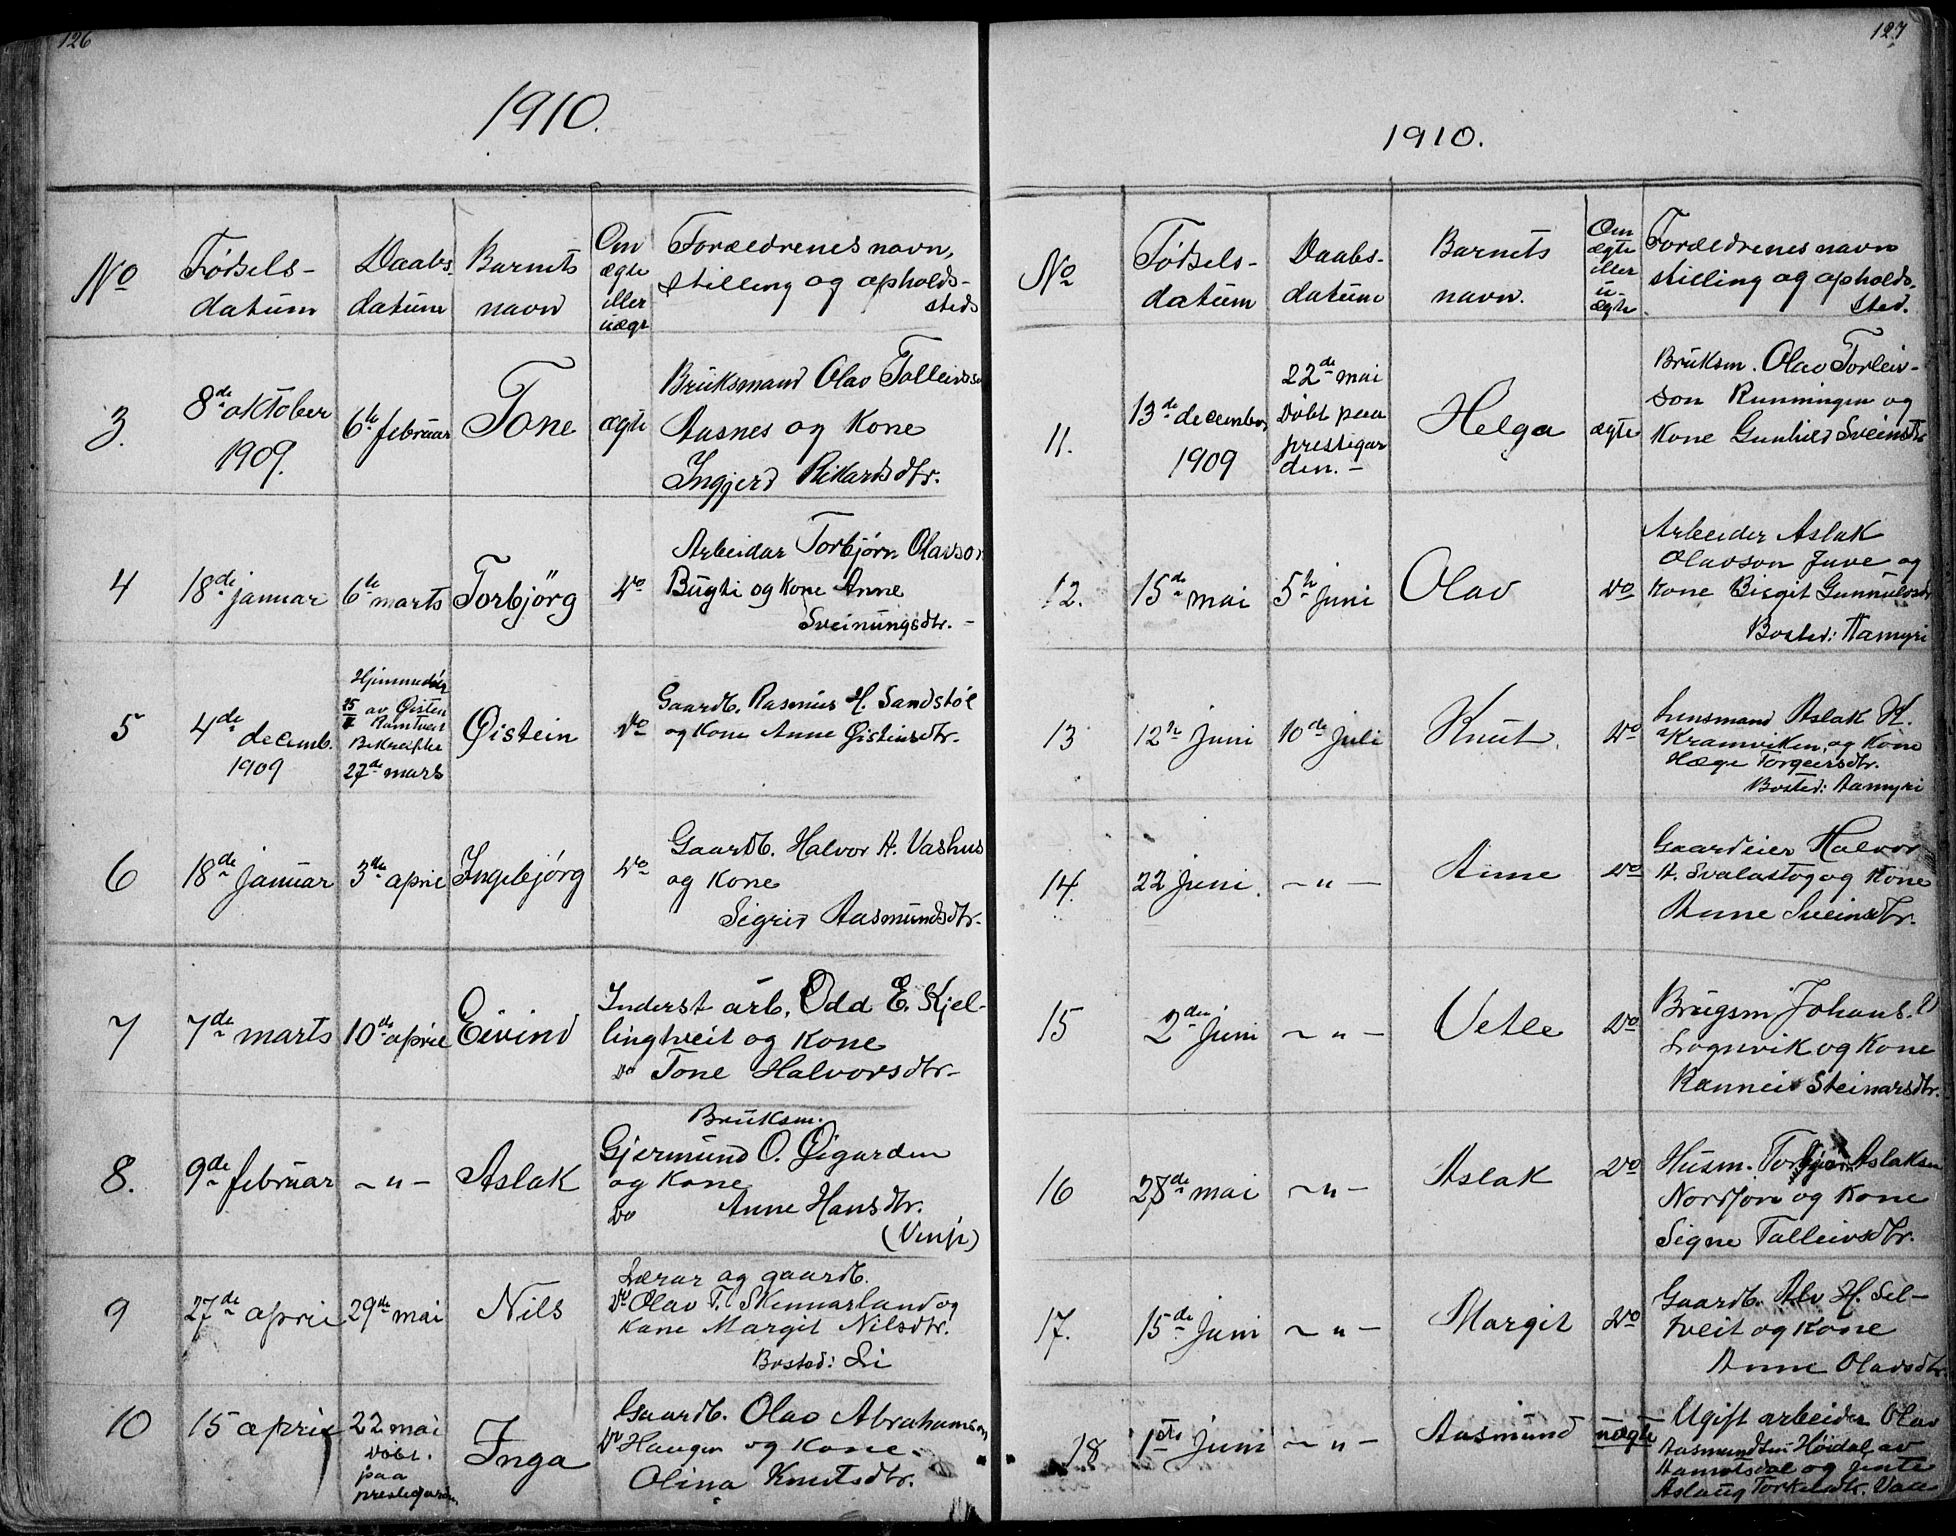 126
1910.
No
Fødsels-
datum
Daabs-
datum
Barnets
navn
Om
ægte
eller
uægt
Forældrenes navn,
stilling og opholds-
sted
3.
8de oktober
1909.
6te februar
Tone
ægte
Bruksmand Olav Tolleivss
Aasnes og Kone
Ingjerd Rikardsdtr.
4
18de januar
6te marts
Torbjörg
do
Arbeidar Torbjørn Olavson
Bugti og Kone Anne
Sveinungsdtr. -
5
4de
decemb.
1909
Hjemmedøbt
av Øistein
Bekræftet
27de mars
Øistein
do
Gaardb. Rasmus H. Sandstøl
og Kone Anne Øisteinsdtr.
6
18de januar
3de april
Ingebjørg
do
Gaardb. Halvor A. Vashus
og Kone
Sigrid Aasmundsdtr.
7
7de marts
10de april
Eivind
Inderst arb. Odd E. Kjel-
lingtveit og Kone
do Tone Halvorsdtr-
8.
9de februar
- " -
Aslak
Bruksm.
Gjermund O. Øigarden
og Kone
do Anne Hansdtr.
(Vinje)
9
27de april
29de mai
Nils
Lærar og gaardb.
do Olav T. Skinnarland og
Kone Margit Nilsdtr.
Bosted: Li
10
15 april
22 mai
Døbt.
paa
prestegarden
Inga
Gaardb. Olav Abrahamson
do Haugen og Kone
Olina Knutsdtr.
127
1910.
No
Fødsels-
datum
Daabs-
datum
Barnets
navn.
Om
ægte
eller
u-
ægte
Forældrenes navn
stilling og opholds-
sted.
11.
13de december
1909
22de mai
Døbt paa
prestegar
den. -
Helga
ægte
Bruksm. Olav Torleiv-
son Runningen og
Kone Gunhild Sveinsdtr
12.
15de mai
5te juni
Olav
do
Arbeider Aslak
Olavson Juve og
Kone Birgit Gunnulvsdtr
Bosted: Aamyri
13
12te juni
10de juli
Knut.
do
Lensmand Aslak K.
Kramviken og Kone
Hæge Torgeirsdtr.
Bosted: Aamyri
14.
22 juni.
- " -
Anne
do
Gaardeier Halvor
A. Svalastog og Kone
Anne Sveinsdtr.
15
2den juni
- " -
Vetle
do
Brugsm Johans.
Lognvik og Kone
Ranneid Steinarsdtr.
16
28de mai
- " -
Aslak
do
Husm. Torbjørn Aslaksen
Nordjor og Kone
Signe Talleivsdtr.
17.
15de juni
- " -
Margit
do
Gaardb. Alv H. Sel-
tveit og Kone
Anne Olavsdtr
18
1ste juni
- " -
Aasmund
uægte
Ugift arbeider Olav
Aasmundsen Høidal av
og jente
Aslaug Torkelsdtr. Vaa